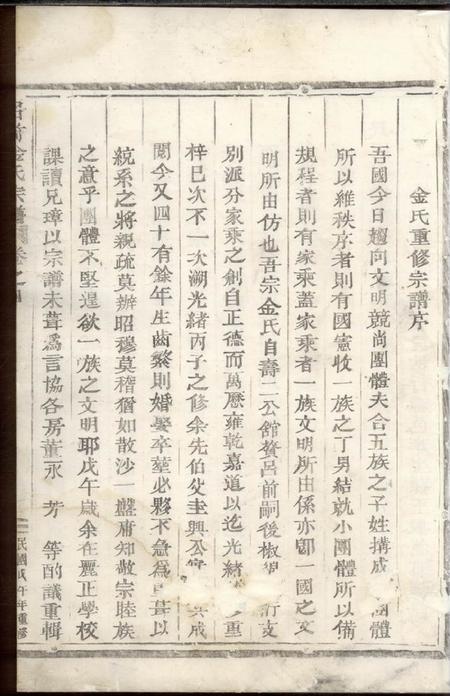 金氏重修宗譜序
吾國今日趨向文明競尚團體夫合五族之子姓搆成團體
所以維秩序者則有國憲收一族之丁男結就小團體所以備
規程者則有家乘蓋家乘者一族文明所由係亦卽一國之文
明所由仿也吾宗金氏自壽二公舘贅呂前嗣後椒 衍支
別派分家乘之創自正德而萬歷雍乾嘉道以迄光緒 重
梓已次不一次溯光緒丙子之修余先伯父圭興公 其成
閱今又四十有餘年生齒繁則婚娶卒塟必夥不急為 葺以
統系之將親疏莫辦昭穆莫稽猶如散沙一盤甫知敬宗睦族
之意乎團體不堅遑欲一族之文明耶戊午歲余在麗正學校
課讀兄璋以宗譜未葺爲言協各房董永 芳 等酌議重輯
呂前金氏宗譜 卷之
民國戊午年重修